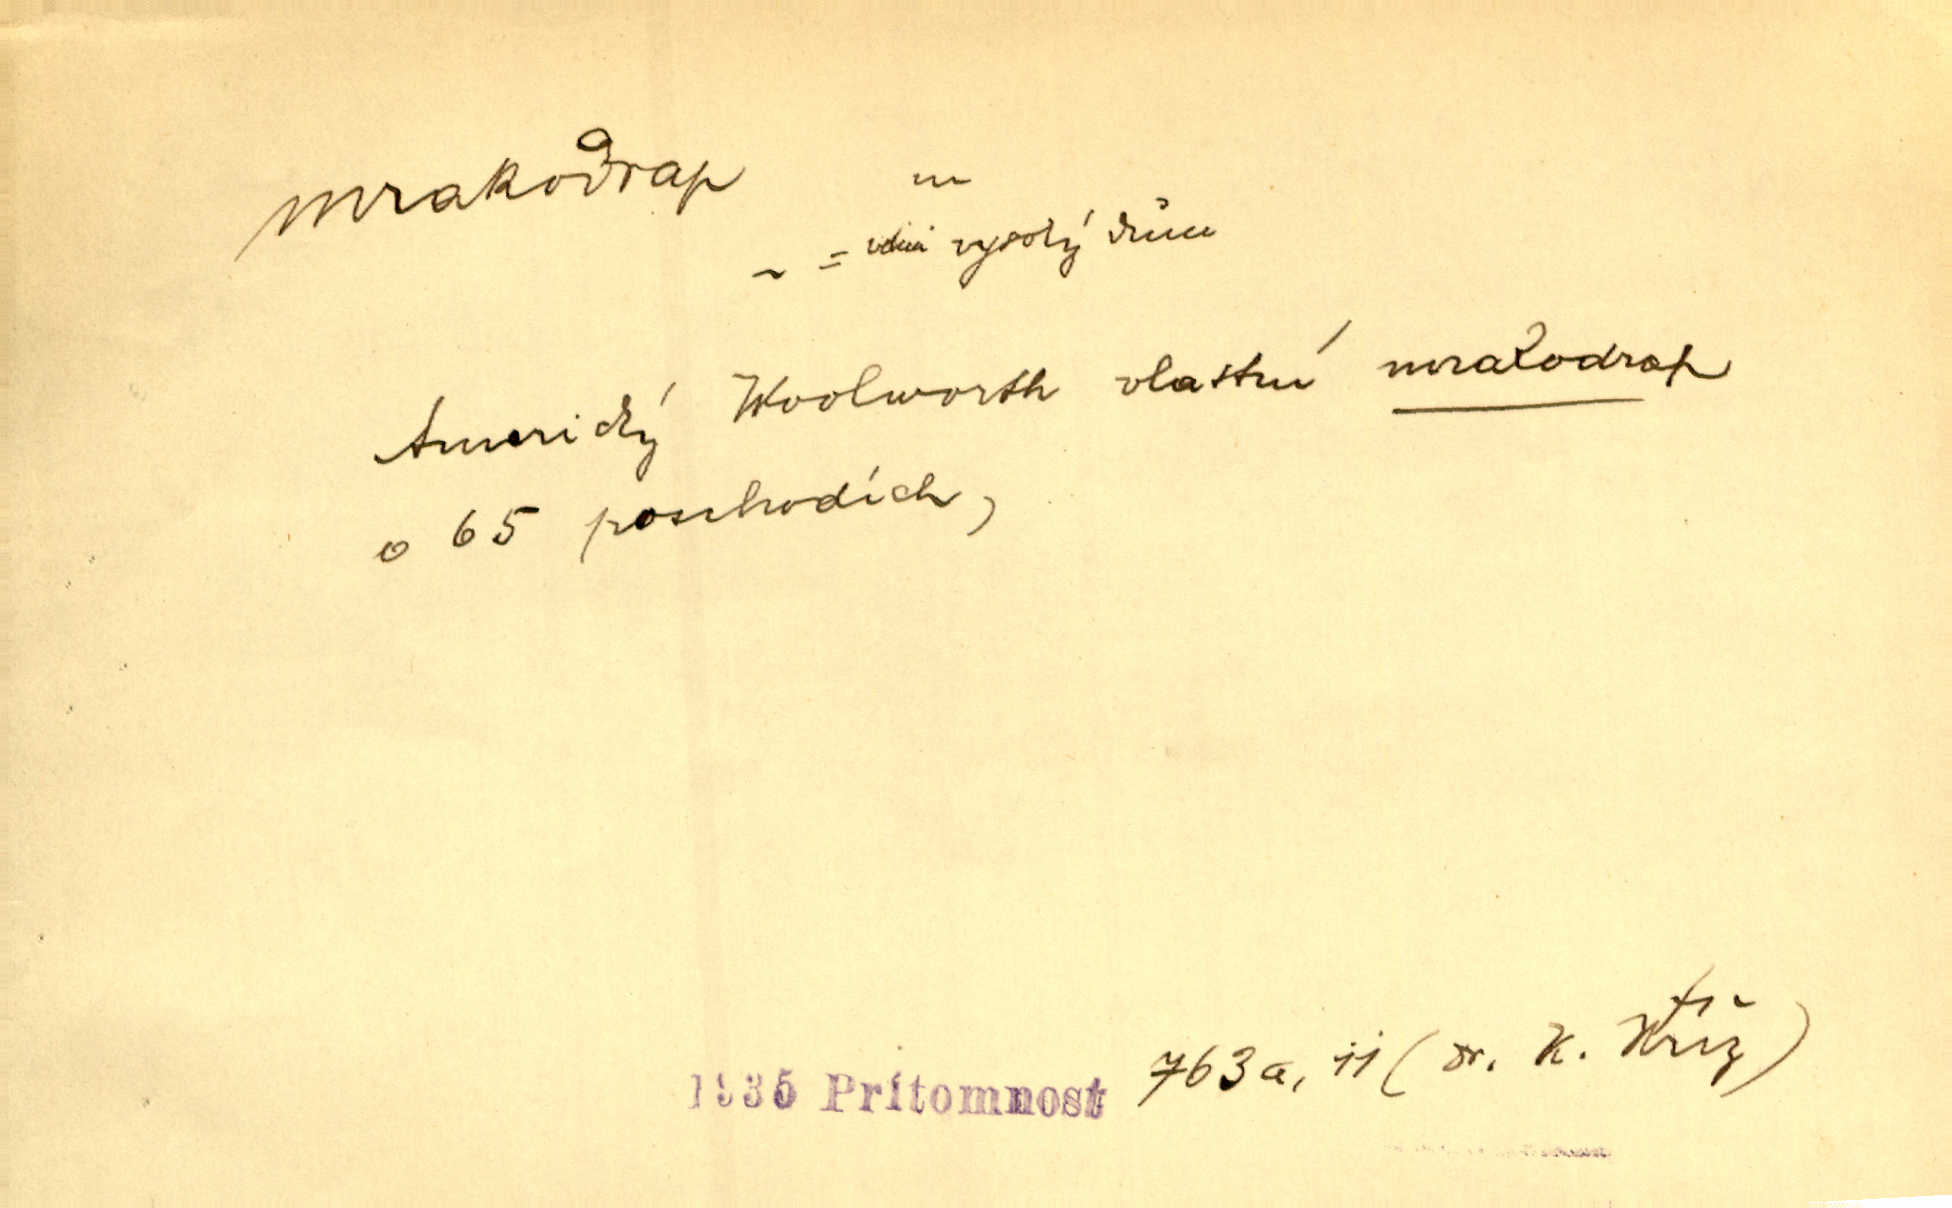 mrakodrap m
~ = velmi vysoký dům
Americký Woolworth vlastní mrakodrap
o 65 poschodích,
1935 Prítomnost 763a, ii (dr. K. Kříž)